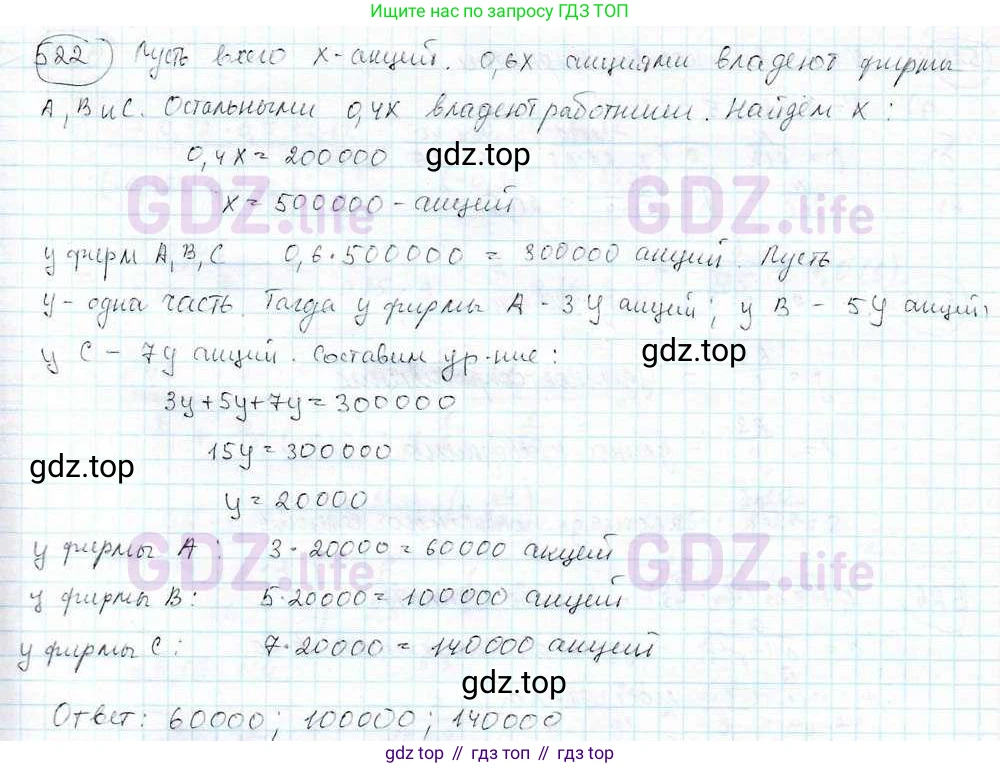 Ищите по запросу ГДЗ ТОП
522 Пусть всего x-акций. 0,6x акциями владеют фирмы
A, B и C. Остальными 0,4x владеют работники. Найдём x:
0,4x = 200000
gdz.top
x = 500000 - акций
GDZ.life GDZ.life
у фирм A, B, C 0,6·500000 = 300000 акций. Пусть
y- одна часть. Тогда у фирмы A - 3y акций; у B - 5y акций;
у C - 7y акций. Составим ур-ние:
gdz.top
3y+5y+7y=300000
15y=300000
gdz.top
y=20000
у фирмы A: 3·20000=60000 акций
GDZ.life GDZ.life
у фирмы B: 5·20000=100000 акций
у фирмы C: 7·20000=140000 акций
gdz.top
Ответ: 60000; 100000; 140000
gdz top // гдз топ // gdz.top